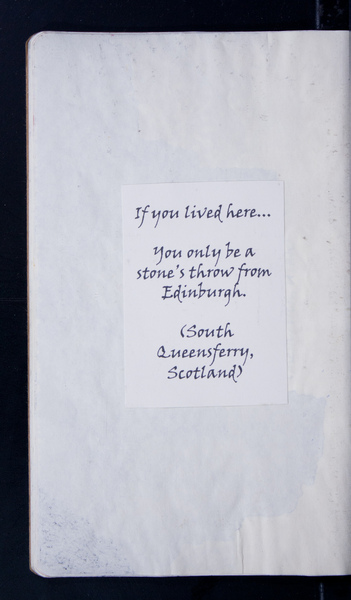 If you lived here...
You only be a
stone's throw from
Edinburgh.
(South
Queensferry,
Scotland)